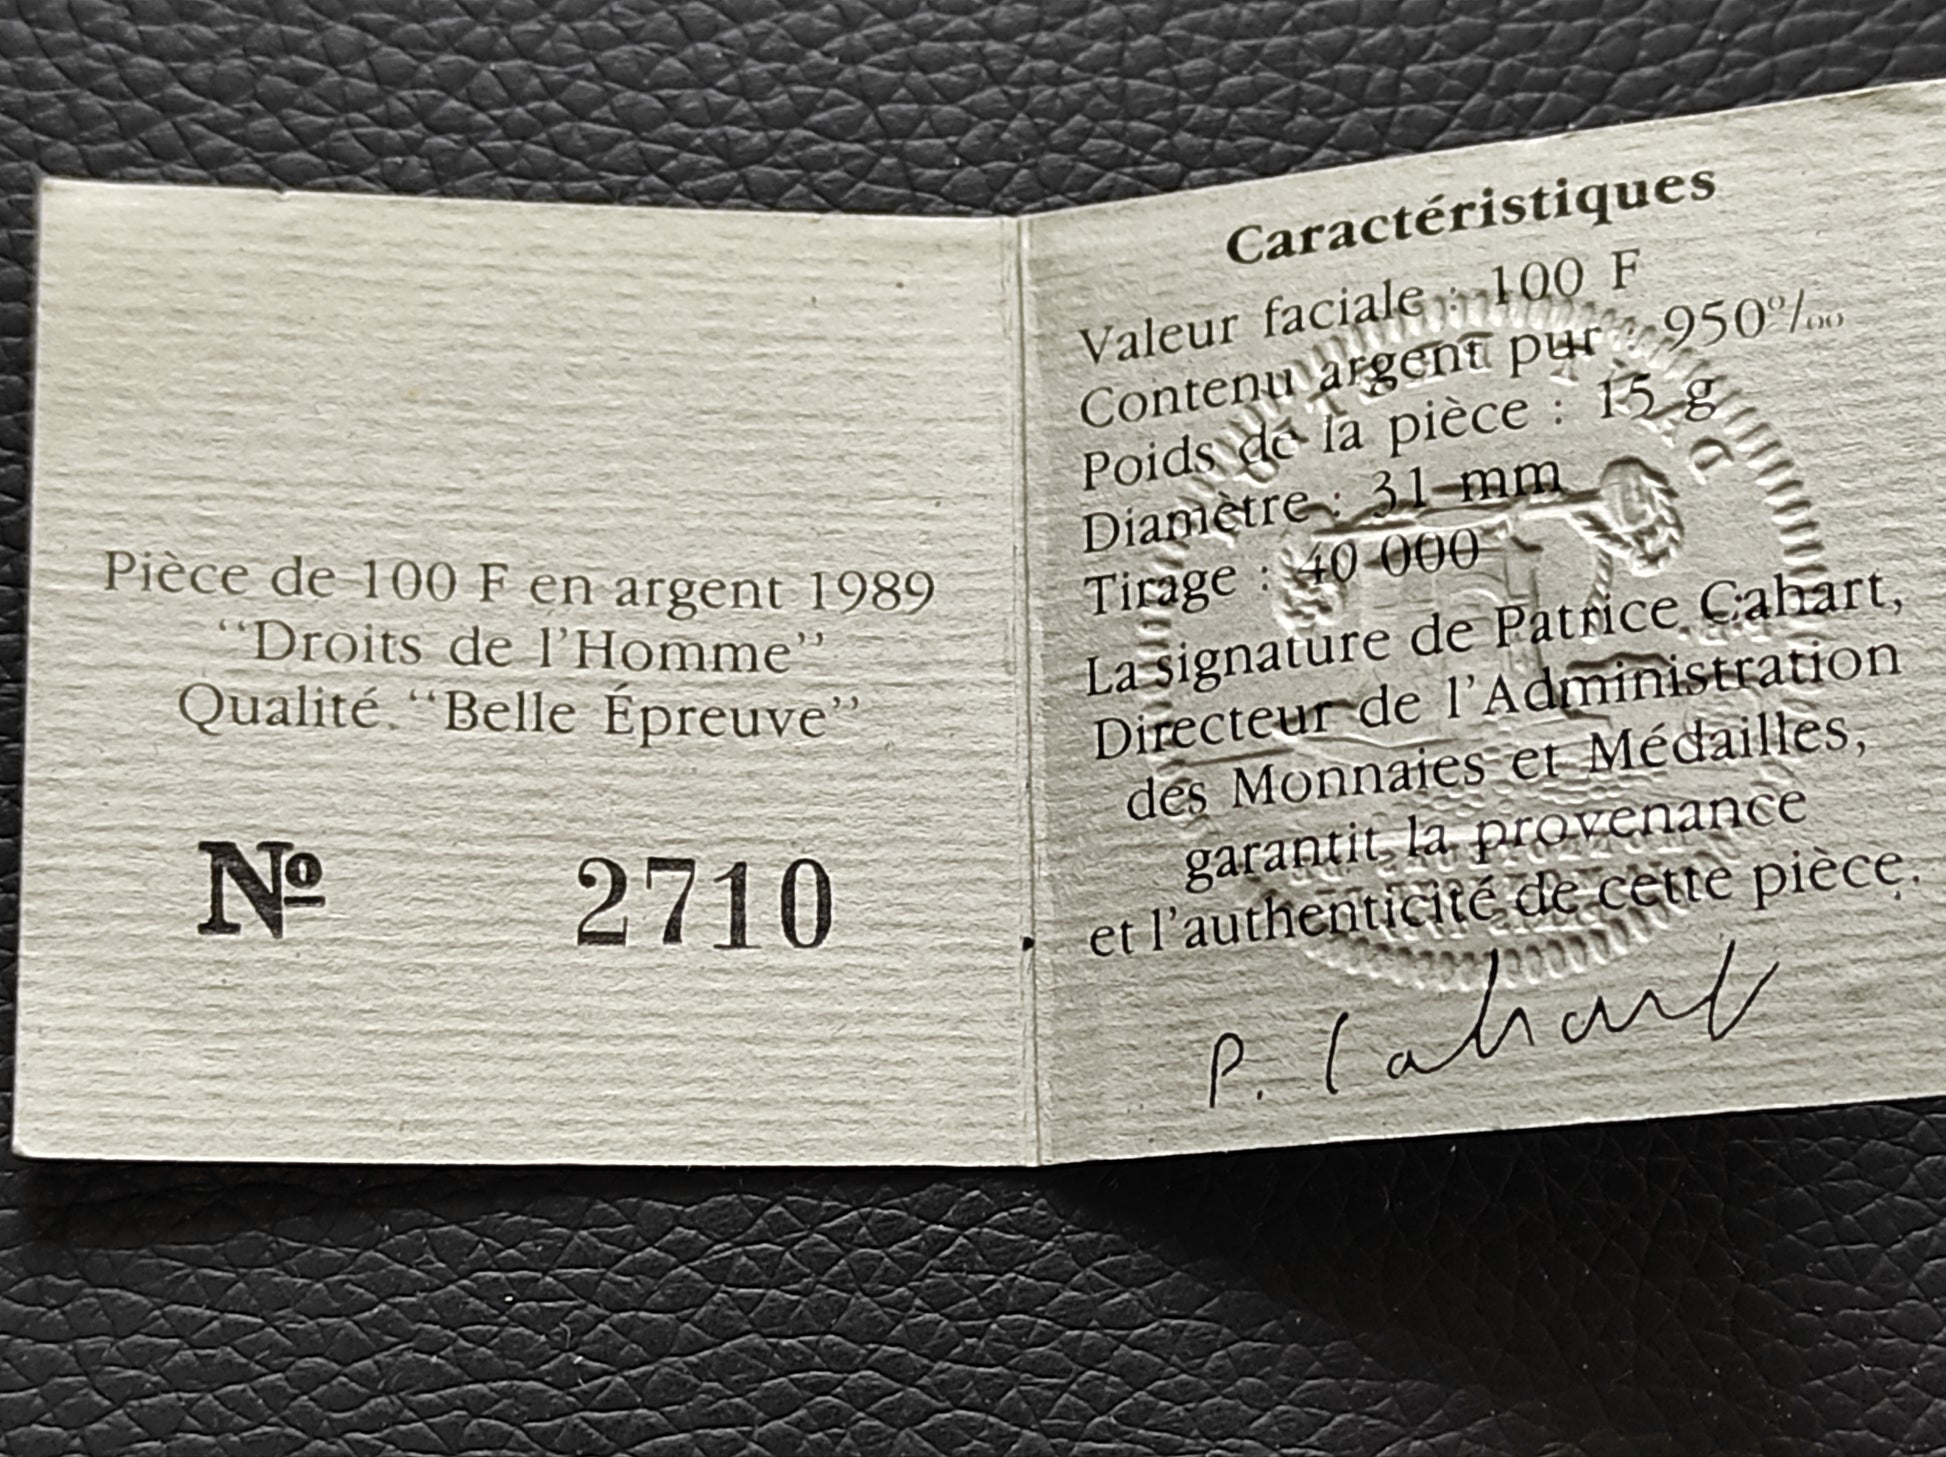 Pièce de 100 F en argent 1989
“Droits de l’Homme”
Qualité “Belle Épreuve”
Nº 2710
Caractéristiques
Valeur faciale : 100 F
Contenu argent pur : 950º/₀₀
Poids de la pièce : 15 g
Diamètre : 31 mm
Tirage : 40 000
La signature de Patrice Cahart,
Directeur de l’Administration
des Monnaies et Médailles,
garantit la provenance
et l’authenticité de cette pièce.
P. Cahart